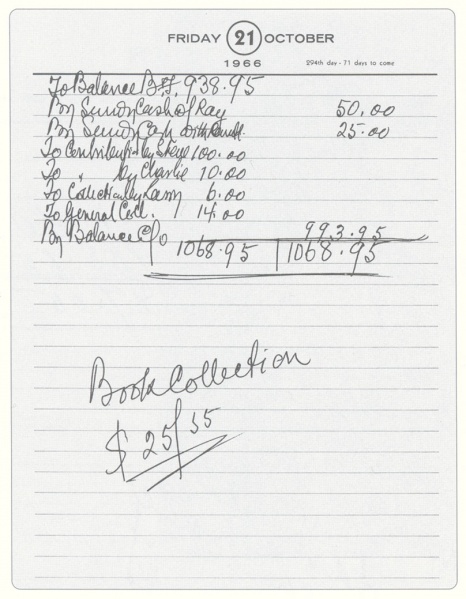 FRIDAY 21 OCTOBER
1966
294th day - 71 days to come
To Balance B/F. 938.95
By Sundry Cash of Ray 50.00
By Sundry Cash 25.00
To Contribution by Steve 100.00
To " by Charlie 10.00
To Collection by 6.00
To General Coll. 14.00
By Balance C/o 993.95
1068.95 1068.95
Book Collection
$ 25/35